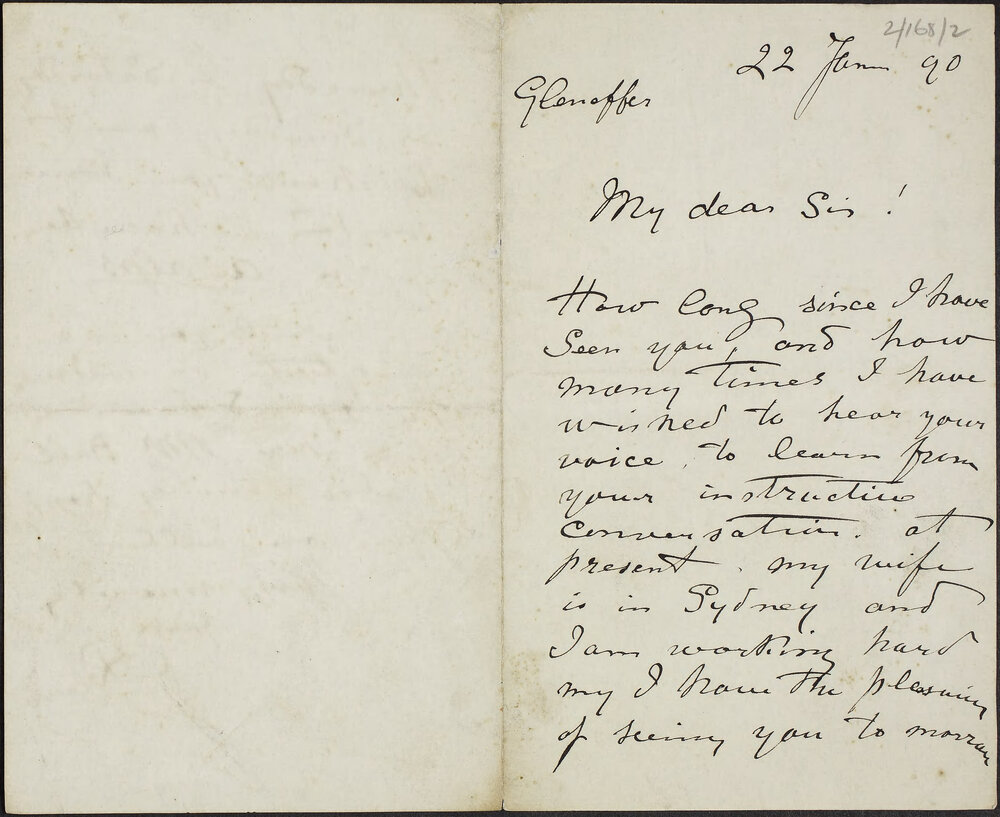 2/168/2
22 Jan 90
Gleneffer
My dear Sir!
How long since I have
Seen you, and how
many times I have
wished to hear your
voice, to learn from
your instructive
conversation. at
present. my wife
is in Sydney and
I am working hard
my I have the pleasure
of seeing you to morrow